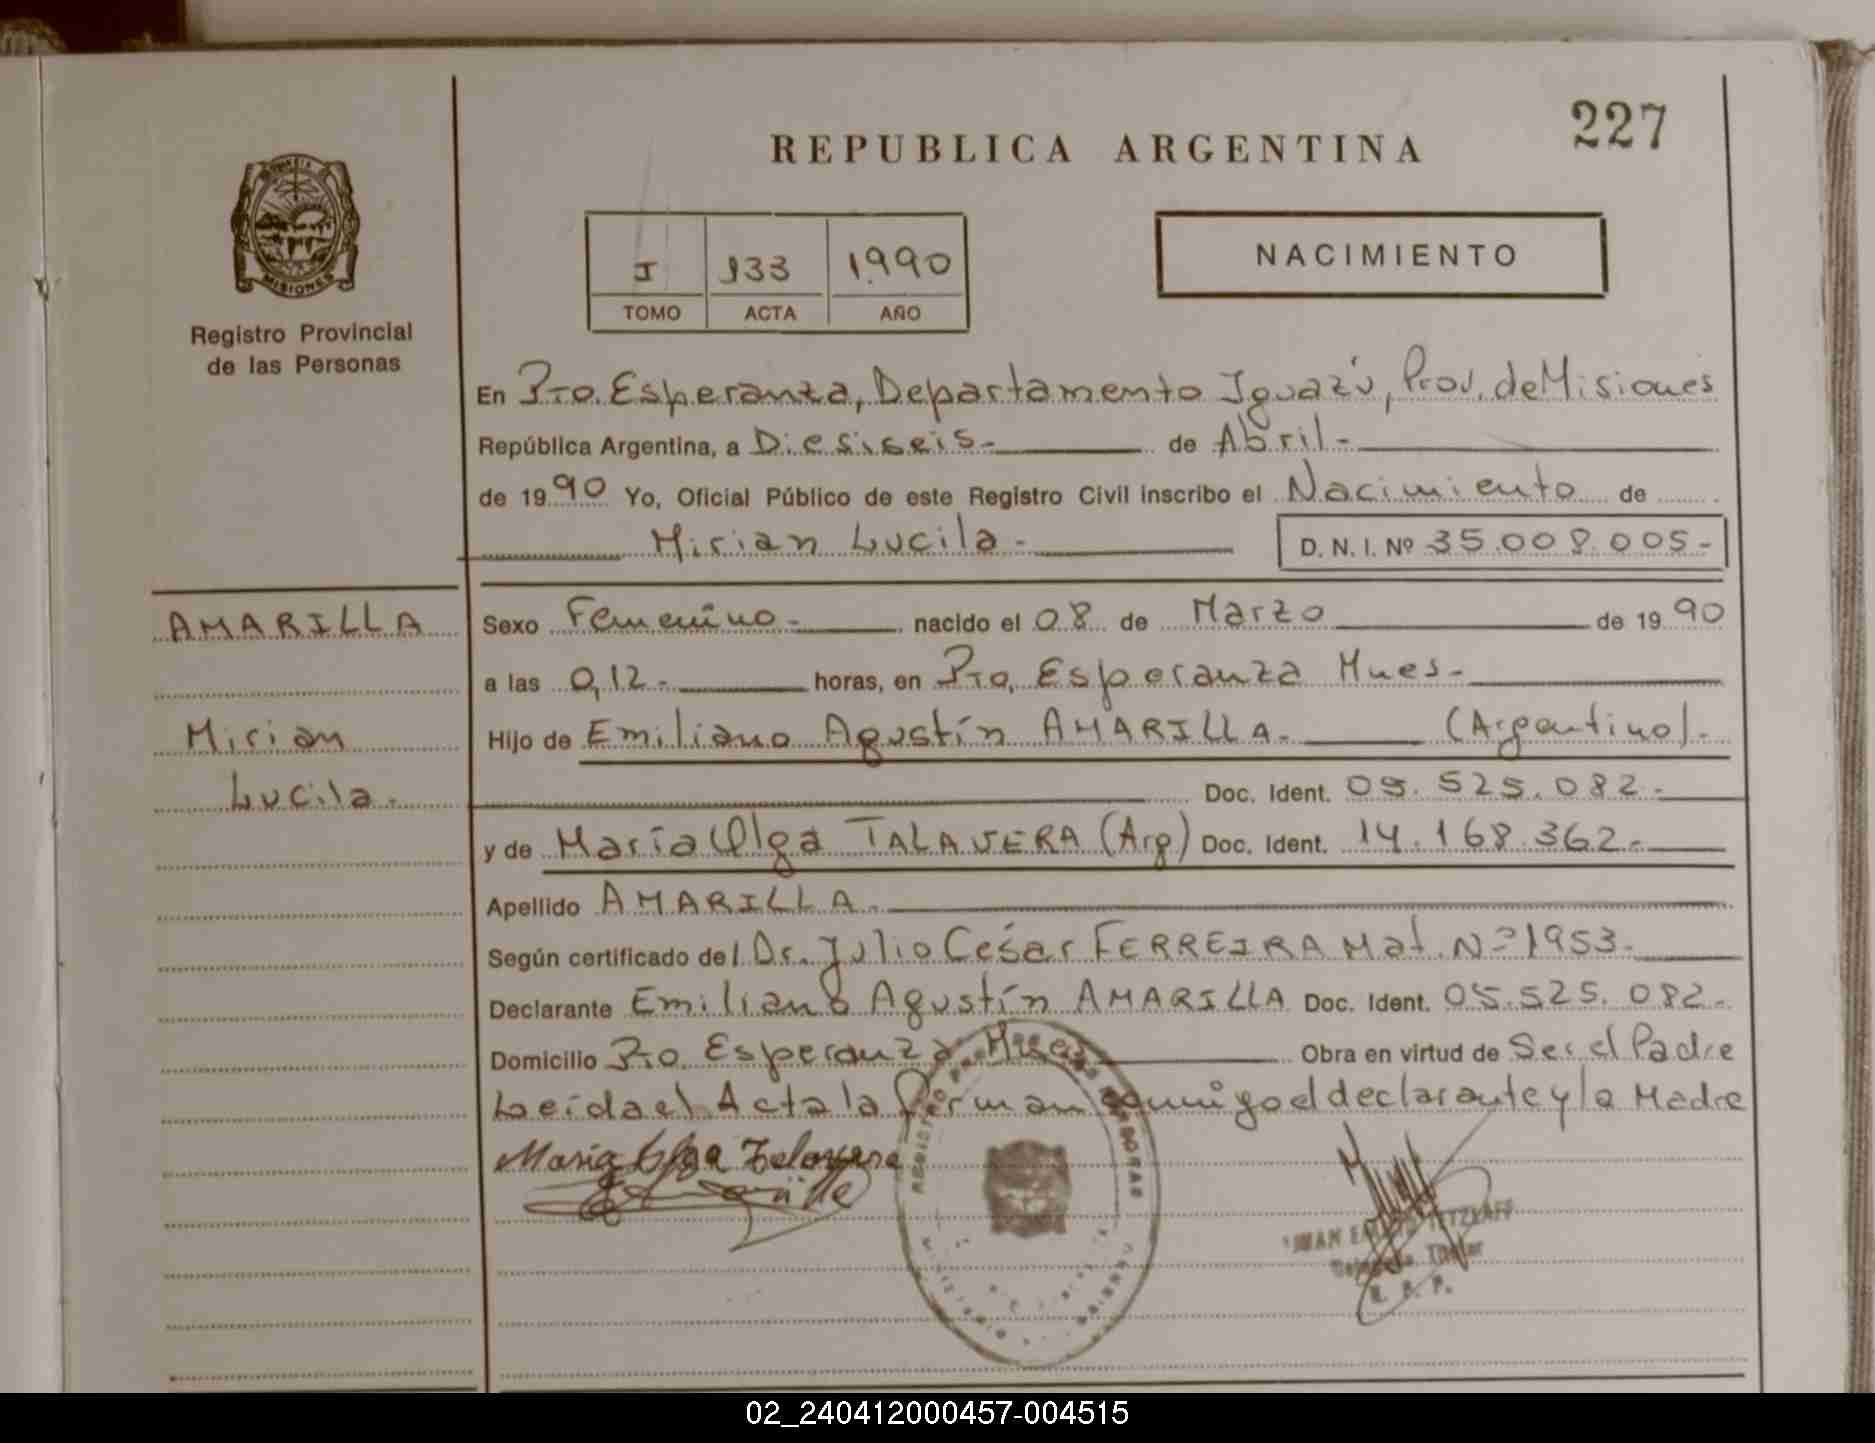 227
REPUBLICA ARGENTINA
MISIONES
Registro Provincial
de las Personas
I 133 1990
TOMO ACTA AÑO
NACIMIENTO
En Pto. Esperanza, Departamento Iguazú, Prov. de Misiones
República Argentina, a Diesiseis.- de Abril.-
de 1990 Yo, Oficial Público de este Registro Civil inscribo el Nacimiento de
Mirian Lucila.-
D. N. I. Nº 35.008.005-
AMARILLA
Mirian
Lucila.
Sexo Femenino.- nacido el 08 de Marzo de 1990
a las 0,12.- horas, en Pto. Esperanza Mnes.-
Hijo de Emiliano Agustín AMARILLA.- (Argentino).-
Doc. Ident. 05.525.082.-
y de María Olga TALAVERA (Arg) Doc. Ident. 14.168.362.-
Apellido AMARILLA.-
Según certificado del Dr. Julio César FERREIRA Mat. Nº 1953.-
Declarante Emiliano Agustín AMARILLA Doc. Ident. 05.525.082.-
Domicilio Pto. Esperanza Mnes Obra en virtud de Ser el Padre
Leida el Acta la firman conmigo el declarante y la Madre
Maria Olga Talavera
JUAN
Titular
R. P. P.
02_240412000457-004515